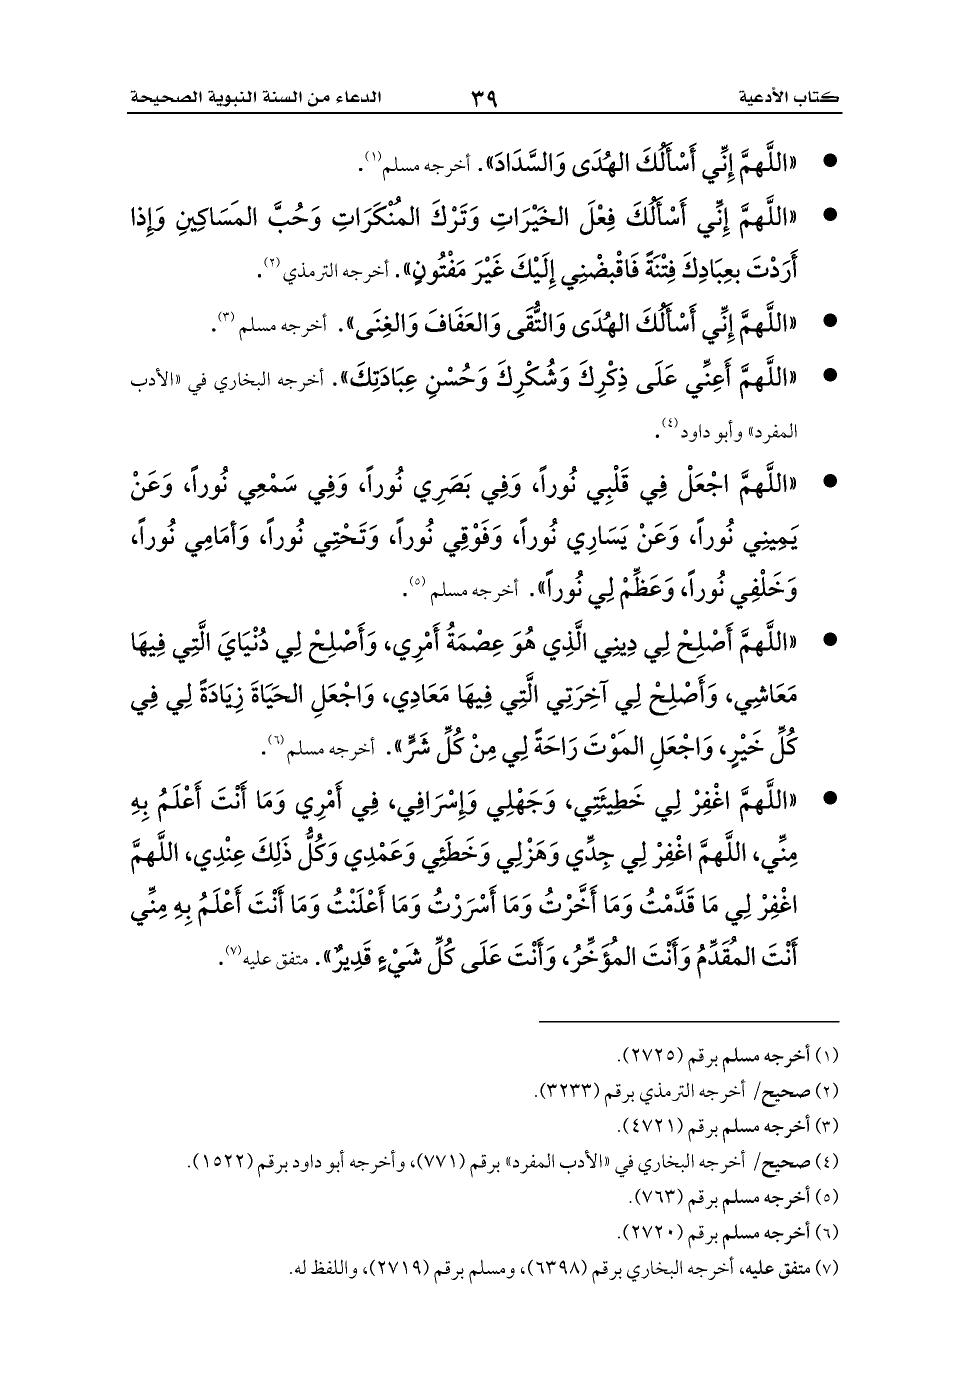 كتاب الأدعية ٣٩ الدعاء من السنة النبوية الصحيحة
● «اللَّهمَّ إِنِّي أَسْأَلُكَ الهُدَى وَالسَّدَادَ». أخرجه مسلم(١).
● «اللَّهمَّ إِنِّي أَسْأَلُكَ فِعْلَ الخَيْرَاتِ وَتَرْكَ المُنْكَرَاتِ وَحُبَّ المَسَاكِينِ وَإِذا
أَرَدْتَ بعِبَادِكَ فِتْنَةً فَاقْبضْنِي إِلَيْكَ غَيْرَ مَفْتُونٍ». أخرجه الترمذي(٢).
● «اللَّهمَّ إِنِّي أَسْأَلُكَ الهُدَى وَالتُّقَى وَالعَفَافَ وَالغِنَى». أخرجه مسلم(٣).
● «اللَّهمَّ أَعِنِّي عَلَى ذِكْرِكَ وَشُكْرِكَ وَحُسْنِ عِبَادَتِكَ». أخرجه البخاري في «الأدب
المفرد» وأبو داود(٤).
● «اللَّهمَّ اجْعَلْ فِي قَلْبِي نُوراً، وَفِي بَصَرِي نُوراً، وَفِي سَمْعِي نُوراً، وَعَنْ
يَمِينِي نُوراً، وَعَنْ يَسَارِي نُوراً، وَفَوْقِي نُوراً، وَتَحْتِي نُوراً، وَأمَامِي نُوراً،
وَخَلْفِي نُوراً، وَعَظِّمْ لِي نُوراً». أخرجه مسلم(٥).
● «اللَّهمَّ أَصْلِحْ لِي دِينِي الَّذِي هُوَ عِصْمَةُ أَمْرِي، وَأَصْلِحْ لِي دُنْيَايَ الَّتِي فِيهَا
مَعَاشِي، وَأَصْلِحْ لِي آخِرَتِي الَّتِي فِيهَا مَعَادِي، وَاجْعَلِ الحَيَاةَ زِيَادَةً لِي فِي
كُلِّ خَيْرٍ، وَاجْعَلِ المَوْتَ رَاحَةً لِي مِنْ كُلِّ شَرٍّ». أخرجه مسلم(٦).
● «اللَّهمَّ اغْفِرْ لِي خَطِيئَتِي، وَجَهْلِي وَإِسْرَافِي، فِي أَمْرِي وَمَا أَنْتَ أَعْلَمُ بِهِ
مِنِّي، اللَّهمَّ اغْفِرْ لِي جِدِّي وَهَزْلِي وَخَطَئِي وَعَمْدِي وَكُلُّ ذَلِكَ عِنْدِي، اللَّهمَّ
اغْفِرْ لِي مَا قَدَّمْتُ وَمَا أَخَّرْتُ وَمَا أَسْرَرْتُ وَمَا أَعْلَنْتُ وَمَا أَنْتَ أَعْلَمُ بِهِ مِنِّي
أَنْتَ المُقَدِّمُ وَأَنْتَ المُؤَخِّرُ، وَأَنْتَ عَلَى كُلِّ شَيْءٍ قَدِيرٌ». متفق عليه(٧).
(١) أخرجه مسلم برقم (٢٧٢٥).
(٢) صحيح/ أخرجه الترمذي برقم (٣٢٣٣).
(٣) أخرجه مسلم برقم (٤٧٢١).
(٤) صحيح/ أخرجه البخاري في «الأدب المفرد» برقم (٧٧١)، وأخرجه أبو داود برقم (١٥٢٢).
(٥) أخرجه مسلم برقم (٧٦٣).
(٦) أخرجه مسلم برقم (٢٧٢٠).
(٧) متفق عليه، أخرجه البخاري برقم (٦٣٩٨)، ومسلم برقم (٢٧١٩)، واللفظ له.